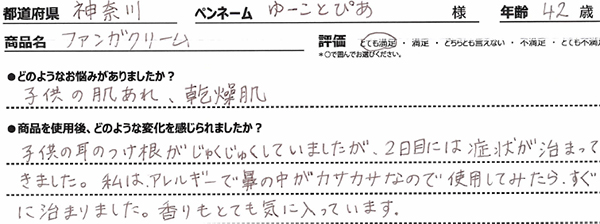 都道府県 神奈川 ペンネーム ゆーことぴあ 様 年齢 42 歳
商品名 ファンガクリーム 評価 とても満足・満足・どちらとも言えない・不満足・とても不満
*○で囲んでお選びください。
●どのようなお悩みがありましたか？
子供の肌あれ、乾燥肌
●商品を使用後、どのような変化を感じられましたか？
子供の耳のつけ根がじゅくじゅくしていましたが、2日目には症状が治まって
きました。私は、アレルギーで鼻の中がカサカサなので使用してみたら、すぐ
に治まりました。香りもとても気に入っています。